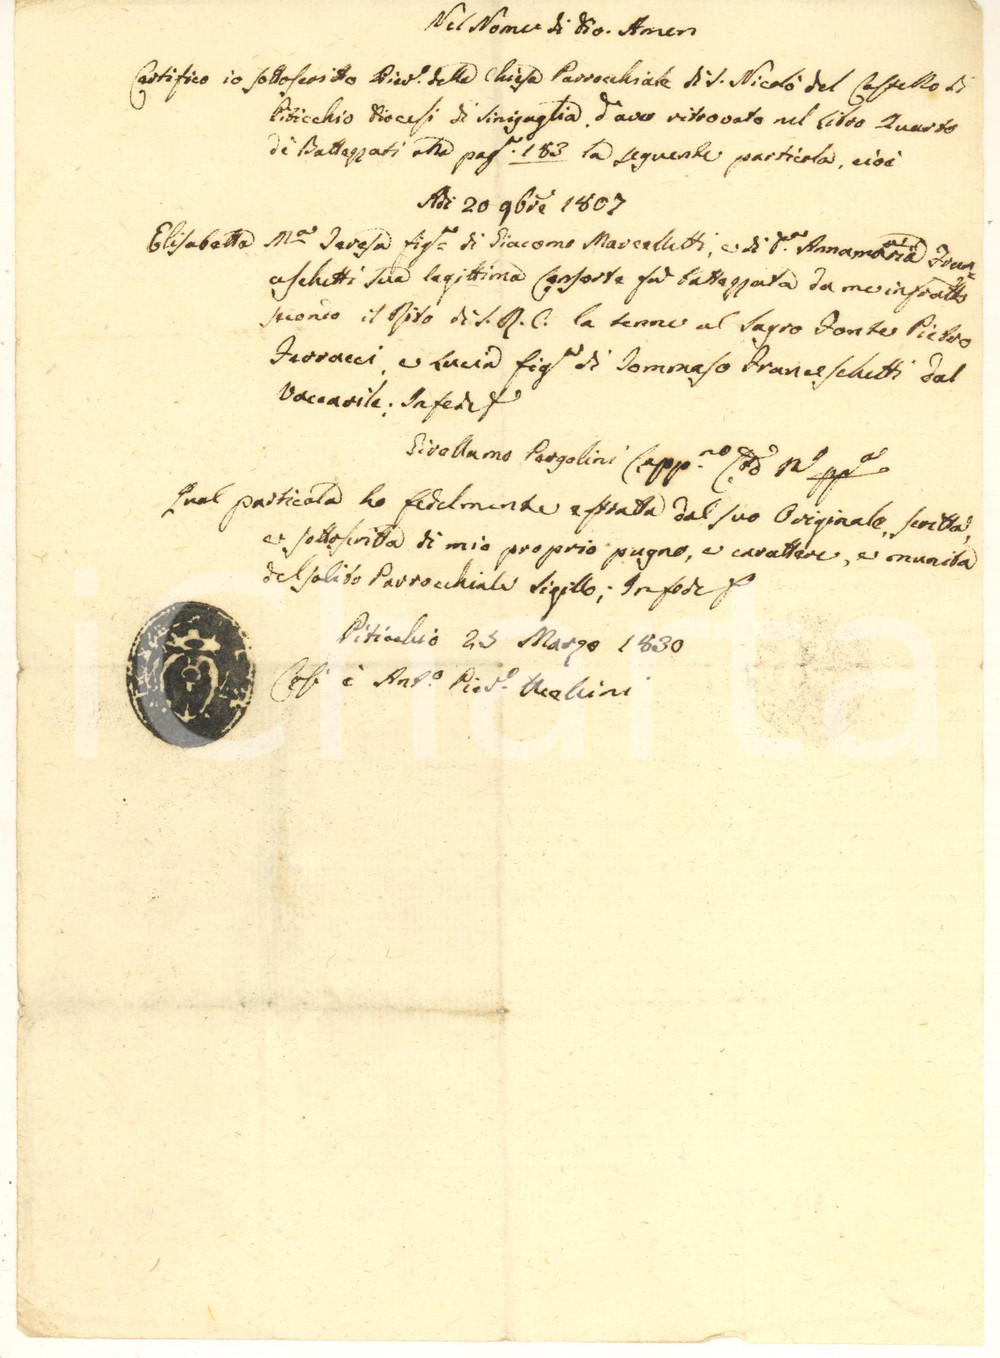 Nel Nome di Dio. Amen
Certifico io sottoscritto Piev.o della Chiesa Parrocchiale di S. Nicolò del Castello di
Piticchio Diocesi di Sinigaglia d'aver ritrovato nel Libro Quarto
de Battezzati alla pag.a 183 la seguente particola, cioè
Adi 20 9bre 1807
Elisabetta M.a Teresa fig.a di Giacomo Marcelletti, e di Annamaria Fran=
ceschetti sua legittima Consorte fù battezzata da me infratto
secondo il Rito di S. R. C. la tenne al Sagro Fonte Pietro
Terracci, e Lucia fig.a di Tommaso Franceschetti dal
Vaccarile; In fede
Girollamo Pergolini Capp.no
Qual particola ho fedelmente estratta dal suo Originale, scritta,
e sottoscritta di mio proprio pugno, e carattere, e munita
del solito Parrocchiale Sigillo; In fede
Piticchio 23 Marzo 1830
Così è Ant.o Piev.o